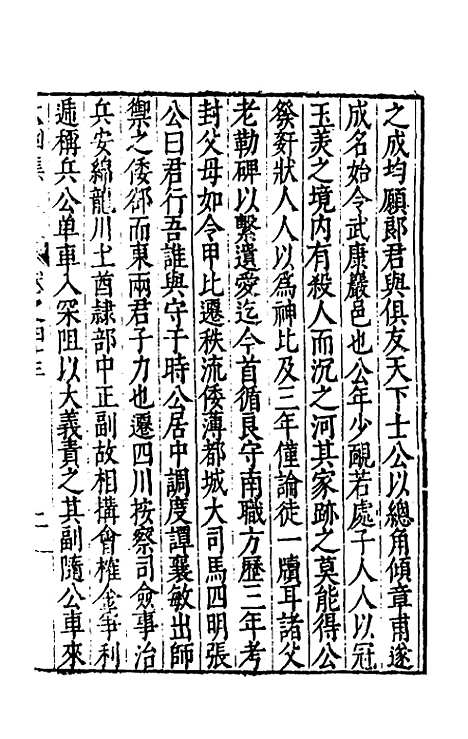 之成均願郎君與俱友天下士公以總角傾章甫遂
成名始令武康嚴邑也公年少靦若處子人人以冠
玉羙之境内有殺人而沉之河其家跡之莫能得公
發姧狀人人以為神比及三年僅論徒一牘耳諸父
老勒碑以繫遺愛迄今首循良守南職方歷三年考
封父母如令甲比遷秩流倭薄都城大司馬四明張
公曰君行吾誰與守于時公居中調度譚襄敏出師
禦之倭郤而東兩君子力也遷四川按察司僉事治
兵安綿龍川土酋隷部中正副故相搆會榷金爭利
遁稱兵公单車入深阻以大義責之其副隨公車來